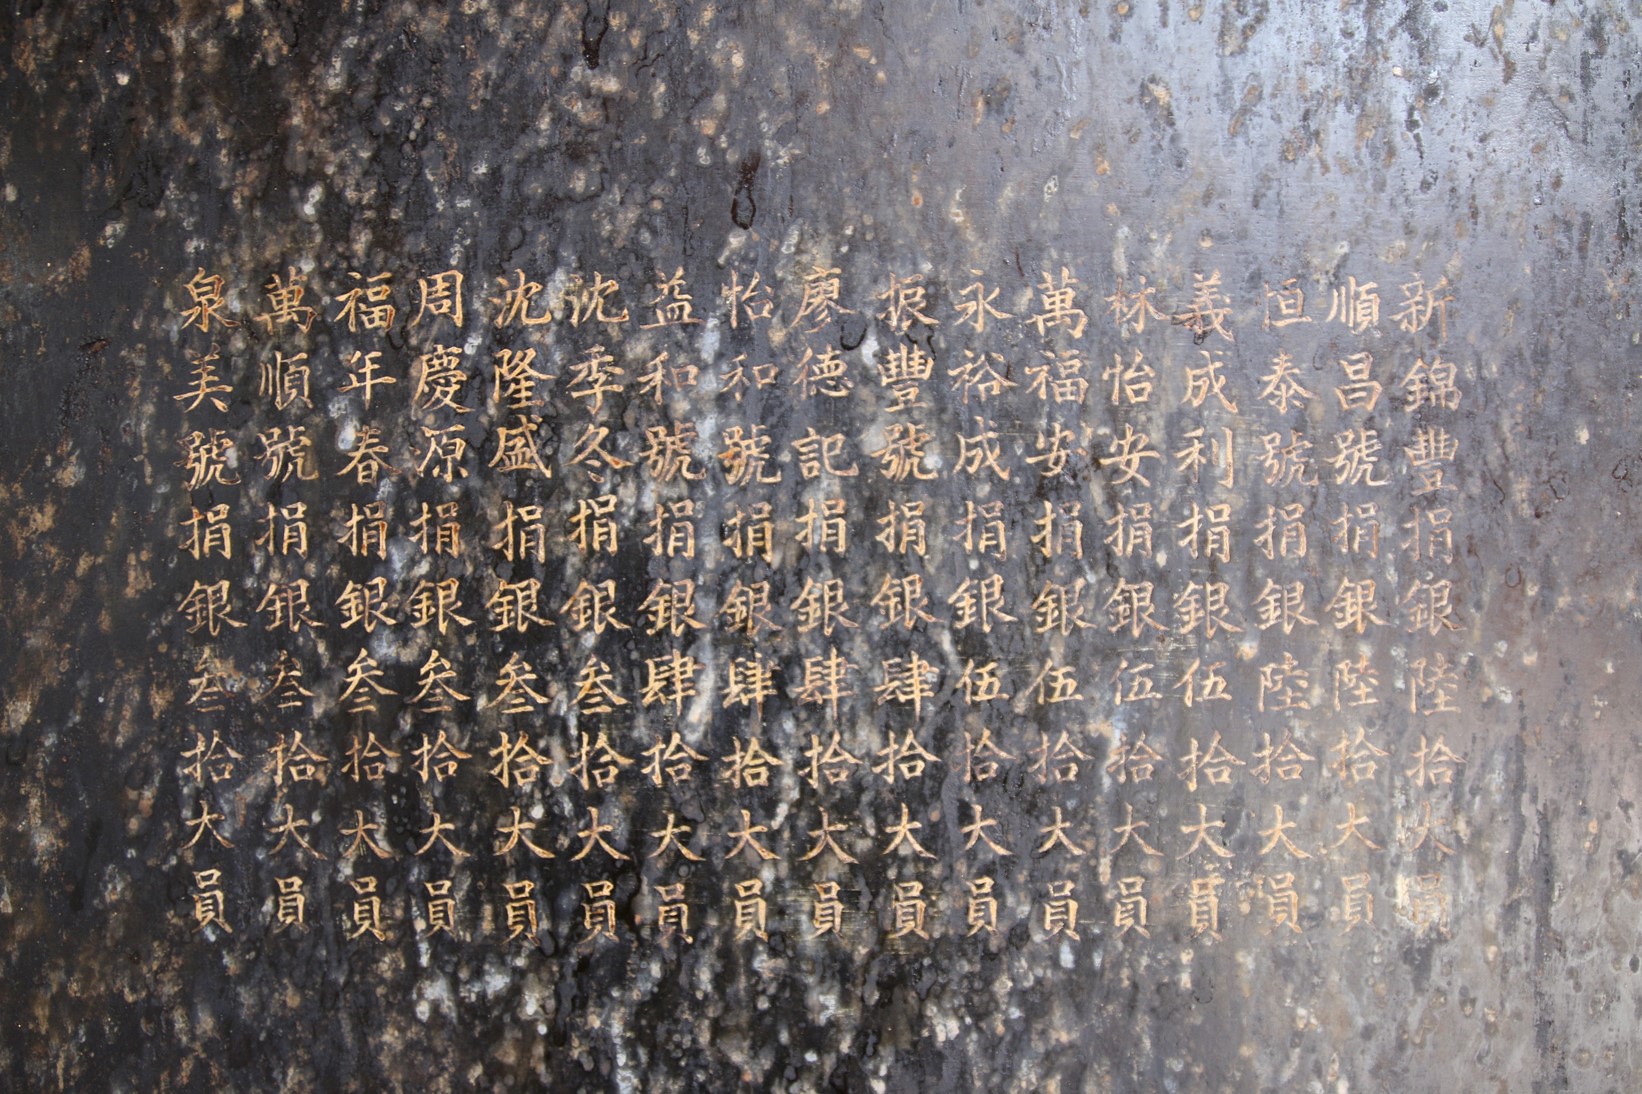 新錦豐捐銀陸拾大員
順昌號捐銀陸拾大員
恒泰號捐銀陸拾大員
義成利捐銀伍拾大員
林怡安捐銀伍拾大員
萬福安捐銀伍拾大員
永裕成捐銀伍拾大員
振豐號捐銀肆拾大員
廖德記捐銀肆拾大員
怡和號捐銀肆拾大員
益和號捐銀肆拾大員
沈季冬捐銀叁拾大員
沈隆盛捐銀叁拾大員
周慶原捐銀叁拾大員
福年春捐銀叁拾大員
萬順號捐銀叁拾大員
泉美號捐銀叁拾大員